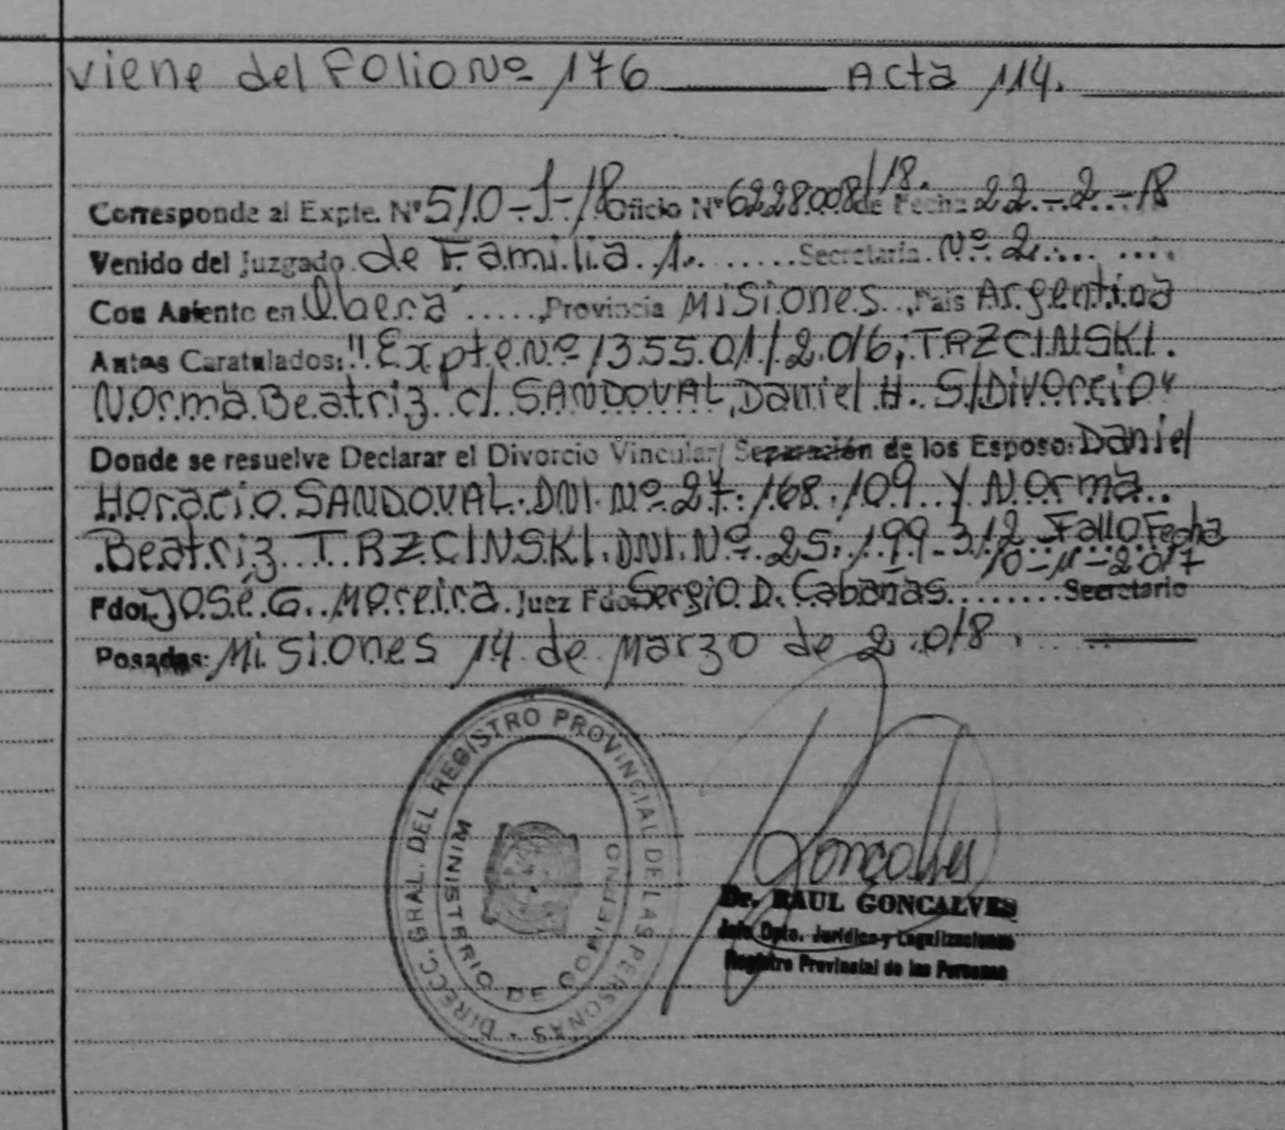 viene del Folio Nº 176 Acta 114.
Corresponde al Expte. Nº 510-J-18 Oficio Nº 6228008/18. de Fecha 22-2-18
Venido del Juzgado de Familia 1. Secretaría Nº 2
Con Asiento en Oberá Provincia Misiones País Argentina
Autos Caratulados: "Expte Nº 135501/2016, TRZCINSKI.
Norma Beatriz c/ SANDOVAL, Daniel H. S/Divorcio"
Donde se resuelve Declarar el Divorcio Vincular/ Separación de los Esposo: Daniel
Horacio SANDOVAL. DNI. Nº 27.168.109 Y Norma
Beatriz TRZCINSKI. DNI. Nº 25.199-312 Fallo Fecha
10-11-2017
Fdo. José G. Moreira. Juez Fdo Sergio D. Cabañas Secretario
Posadas: Misiones 14 de Marzo de 2018.
DIRECC. GRAL. DEL REGISTRO PROVINCIAL DE LAS PERSONAS
MINISTERIO DE GOBIERNO
Goncalves
Dr. RAUL GONCALVES
Jefe Dpto. Jurídico y Legalizaciones
Registro Provincial de las Personas